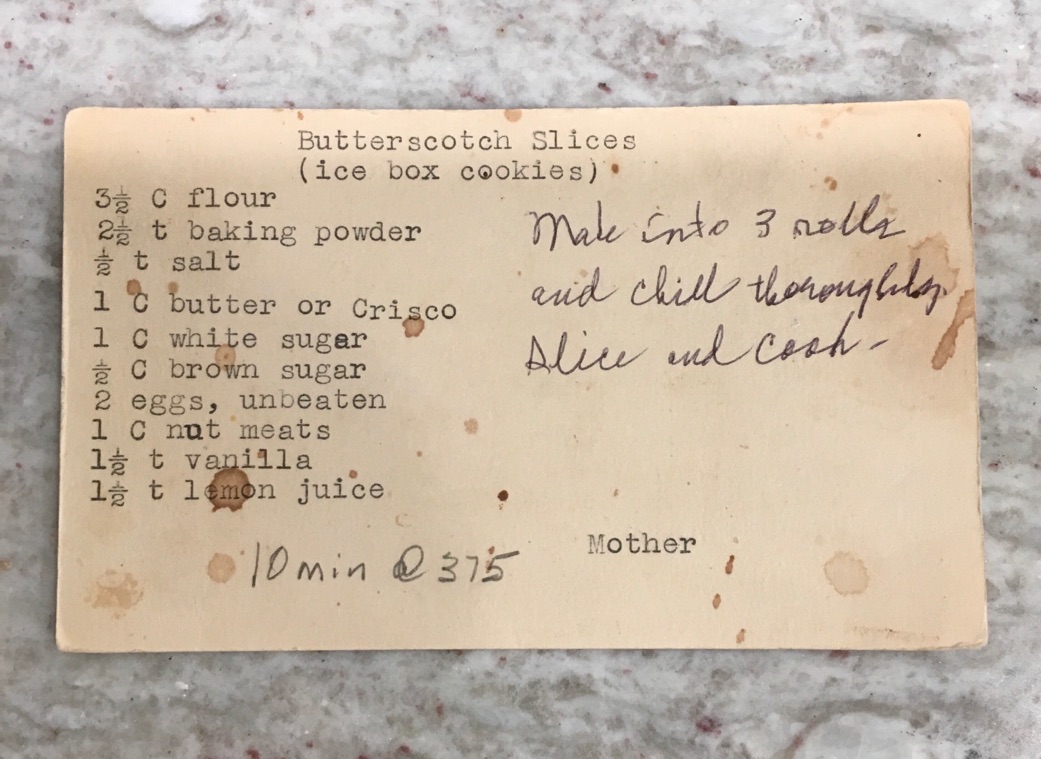 Butterscotch Slices
(ice box cookies)
3½ C flour
2½ t baking powder
½ t salt
1 C butter or Crisco
1 C white sugar
½ C brown sugar
2 eggs, unbeaten
1 C nut meats
1½ t vanilla
1½ t lemon juice
Make into 3 rolls
and chill thoroughly.
Slice and cook-
Mother
10 min @ 375